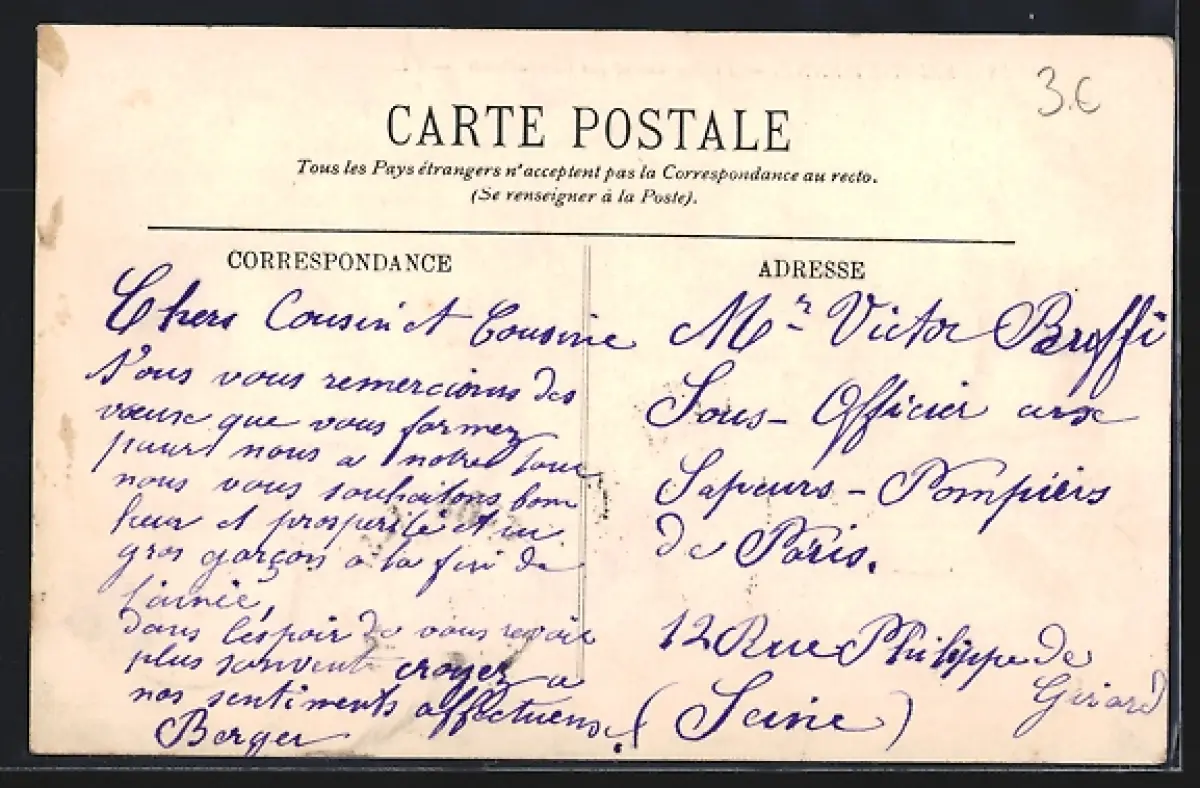 3.€
CARTE POSTALE
Tous les Pays étrangers n'acceptent pas la Correspondance au recto.
(Se renseigner à la Poste).
CORRESPONDANCE
Chers Cousin et Cousine
Nous vous remercions des
vœux que vous formez
pour nous a notre tour
nous vous souhaitons bon
heur et prosperité et un
gros garçon a la fin de
l'année,
dans l'espoir de vous revoir
plus souvent croyez a
nos sentiments affectueux.
Berger
ADRESSE
Mr Victor
Sous-Officier aux
Sapeurs-Pompiers
de Paris.
12 Rue Philippe de
Girard
(Seine)